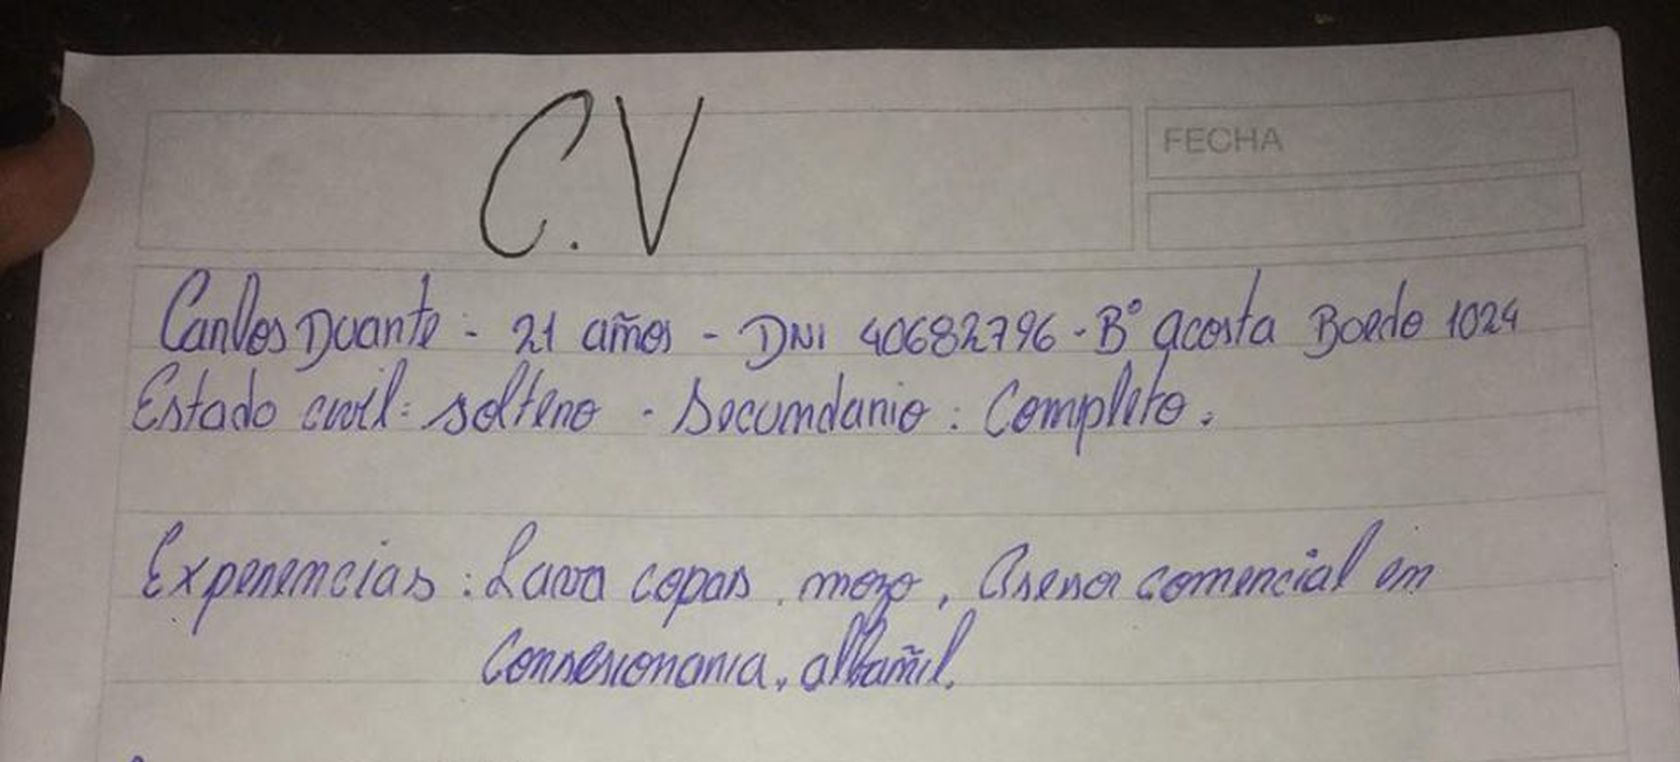 C.V
FECHA
Carlos Duarte - 21 años - DNI 40682796 - B° acosta Boedo 1024
Estado civil: soltero - Secundario: Completo.
Experiencias: Lava copas, mozo, Asesor comercial en
Consesionaria, albañil.